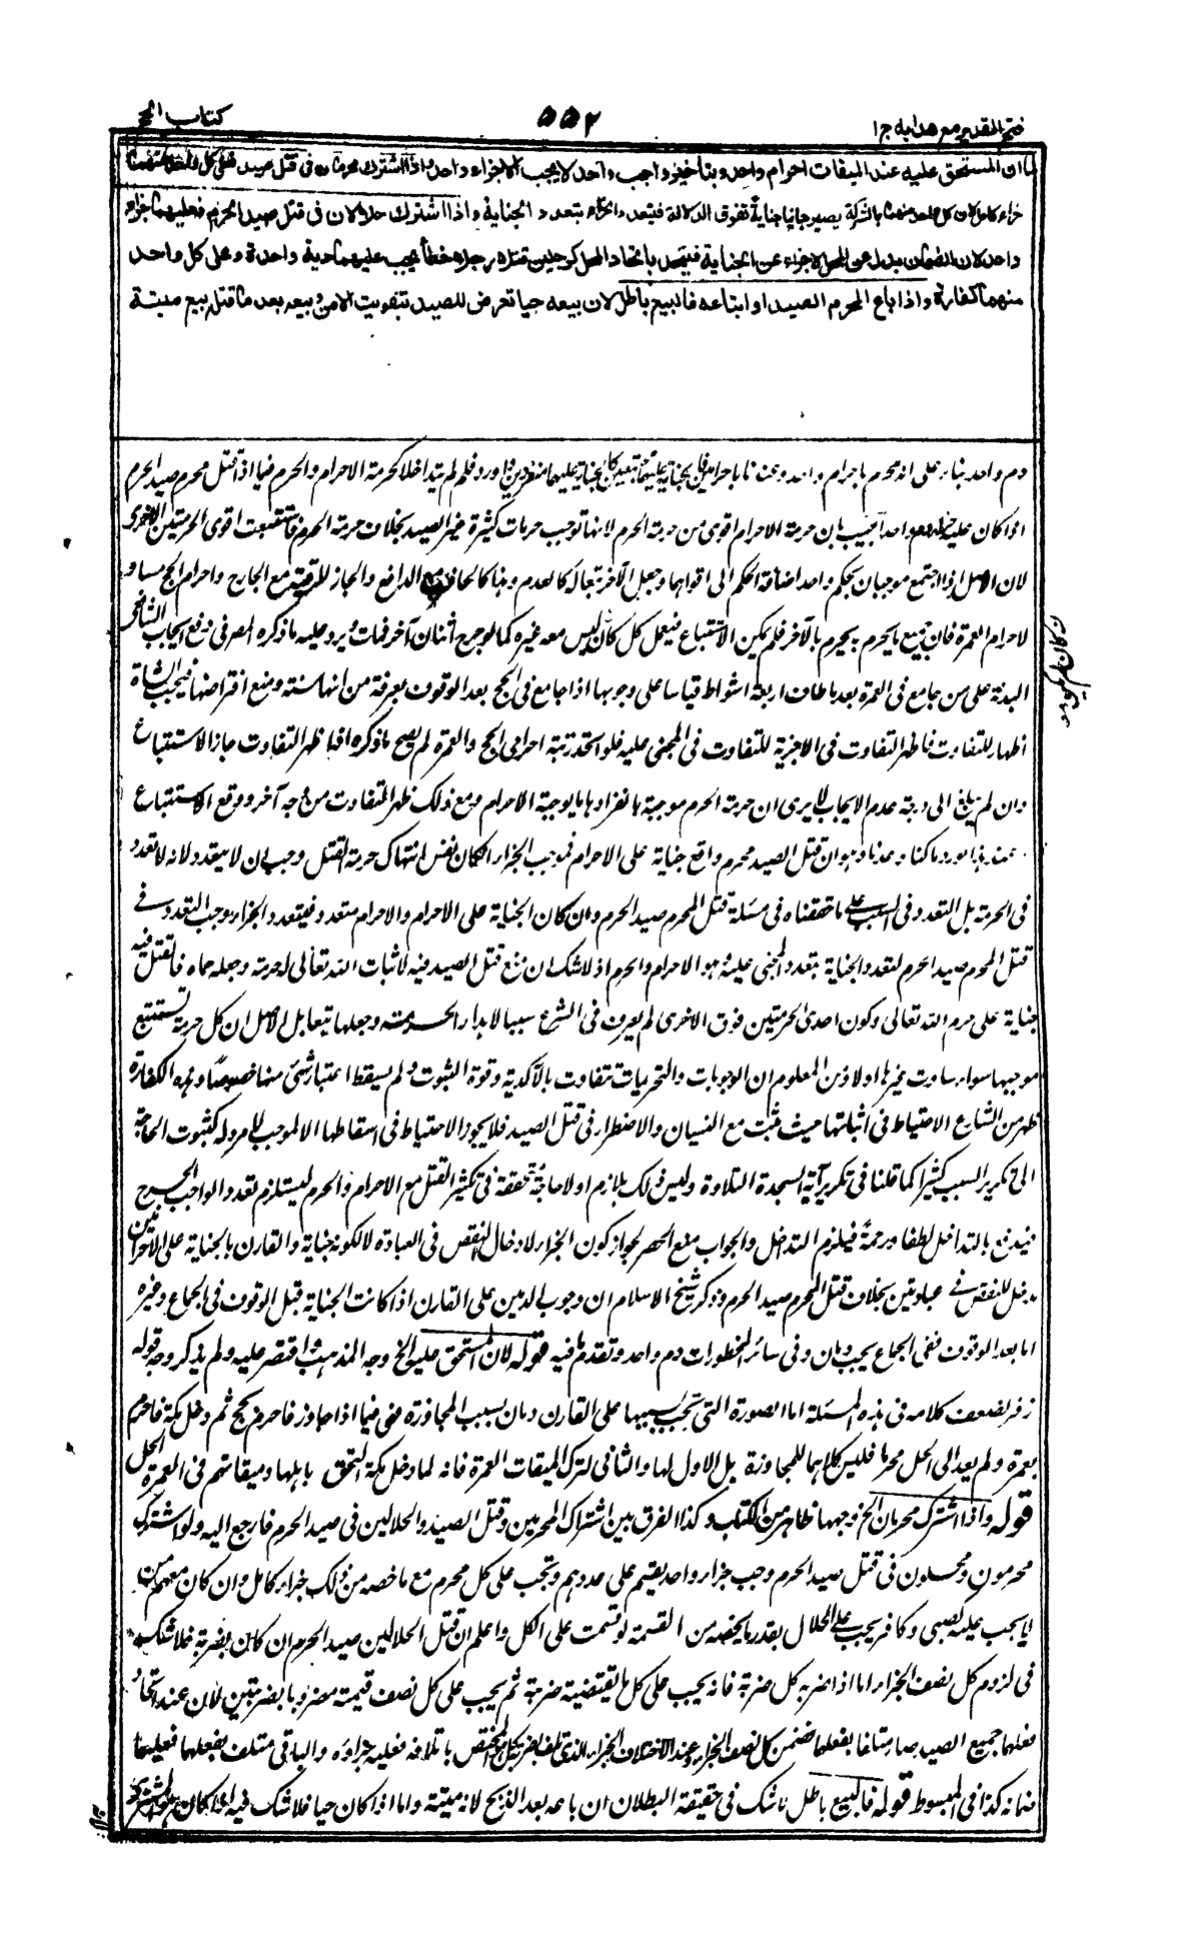 فتح القدير مع هدايه ج ا
۵۵۲
كتاب الحج
ان المستحق عليه عند الميقات احرام واحد وبتأخير واجب واحد لا يجب الا جزاء واحد واذا اشترك محرمان فى قتل صيد فعلى كل واحد منهما
جزاء كامل لان كل واحد منهما بالشركة يصير جانيا جناية تفوق الدلالة فيتعدد الجزاء بتعدد الجناية واذا اشترك حلالان فى قتل صيد الحرم فعليهما جزاء
واحد لان الضمان بدل عن المحل لا جزاء عن الجناية فيتحد باتحاد المحل كرجلين قتلا رجلا خطأ يجب عليهما دية واحدة وعلى كل واحد
منهما كفارة واذا باع المحرم الصيد او ابتاعه فالبيع باطل لان بيعه حيا تعرض للصيد بتفويت الامن وبيعه بعد ما قتل بيع ميتة
دم واحد بناء على انه محرم باحرام واحد وعندنا باحرامين عليهما فلم يتداخلا كحرمة الاحرام والحرم فيما اذا قتل محرم صيد الحرم
اذا كان عليه واحد اجيب بان حرمة الاحرام اقوى من حرمة الحرم لانها توجب حرمات كثيرة غير الصيد بخلاف حرمة الحرم فاستتبعت اقوى الحرمتين الاخرى
لان الاصل اذا اجتمع موجبان بحكم واحد اضافة الحكم الى اقواهما وجعل الآخر تبعا له كالعدم وهنا كالحافر مع الدافع والحاز للرقبة مع الجارح واحرام الحج مساو
لاحرام العمرة فان جميع ما يحرم به يحرم بالآخر فلم يمكن الاستتباع فيعمل كل كأن ليس معه غيره كما لو جرح اثنان آخر فمات ويرد عليه ما ذكره المصر فى دفع ايجاب الشافعى
البدنة على من جامع فى العمرة بعد ما طاف اربعة اشواط قياسا على وجوبها اذا جامع فى الحج بعد الوقوف بعرفة من انها سنة ومنع افتراضها فيجب الشاة
اظهارا للتفاوت فاظهر التفاوت فى الاجزية للتفاوت فى المجنى عليه فلو اتحد رتبة احرامى الحج والعمرة لم يصح ما ذكره اذا ظهر التفاوت جاز الاستتباع
وان لم يبلغ الى درجة عدم الايجاب الا يرى ان حرمة الحرم موجبة بانفرادها ما يوجبه الاحرام ومع ذلك ظهر التفاوت من وجه آخر ووقع الاستتباع
عنده بذا مورد ما كنا وعدناه وهو ان قتل الصيد محرم واقع جناية على الاحرام فموجب الجزاء ان كان نفس انتهاك حرمة القتل وجب ان لا يتعدد لانه لا تعدد
فى الحرمة بل التعدد فى السبب على ما حققناه فى مسئلة قتل المحرم صيد الحرم وان كان الجناية على الاحرام والاحرام متعدد فيتعدد الجزاء وجب التعدد فى
قتل المحرم صيد الحرم لتعدد الجناية بتعدد المجنى عليه وهو الاحرام والحرم اذ لا شك ان منع قتل الصيد فيه لاثبات الله تعالى له حرمة وجعله حماه فالقتل فيه
جناية على حرم الله تعالى وكون احدى الحرمتين فوق الاخرى لم يعرف فى الشرع سببا لاهدار الحرمة وجعلها تبعا بل الاصل ان كل حرمة تستتبع
موجبها سواء ساوت غيرها او لا ومن المعلوم ان الوجوبات والتحريمات تتفاوت بالآكدية وقوة الثبوت ولم يسقط اعتبار شئ منها خصوصا وهذه الكفارة
ظهر من الشارع الاحتياط فى اثباتها حيث ثبت مع النسيان والاضطرار فى قتل الصيد فلا يجوز الاحتياط فى اسقاطها الا لموجب لا مرد له كثبوت الحاجة
الى تكرير السبب كثيرا كما قلنا فى تكرير آية السجدة التلاوة وليس ذلك بلازم او لا حاجة محققة فى تكثير القتل مع الاحرام والحرم ليستلزم تعدد الواجب الحرج
فيدفع بالتداخل لطفا ورحمة فيلزم التداخل والجواب منع الحصر لجواز كون الجزاء لادخال النقص فى العبادة لا لكونه جناية والقارن بالجناية على الاحرامين
مدخل للنقص فى عبادتين بخلاف قتل المحرم صيد الحرم وذكر شيخ الاسلام ان وجوب الدمين على القارن اذا كانت الجناية قبل الوقوف فى الجماع وغيره
اما بعد الوقوف ففى الجماع يجب دمان وفى سائر المحظورات دم واحد وتقدم ما فيه قوله لان المستحق عليه الخ وجه المذهب واقتصر عليه ولم يذكر وجه قوله
زفر لضعف كلامه فى هذه المسئلة اما الصورة التى تجب بسببها على القارن دمان بسبب المجاوزة فهى فيما اذا جاوز فاحرم بحج ثم دخل مكة فاحرم
بعمرة ولم يعد الى الحل محرما فليس كلاهما للمجاوزة بل الاول لها والثانى لترك الميقات العمرة فانه لما دخل مكة التحق باهلها وميقاتهم فى العمرة الحل
قوله واذا اشترك محرمان الخ وجهها ظاهر من الكتاب وكذا الفرق بين اشتراك المحرمين وقتل الصيد والحلالين فى صيد الحرم فارجع اليه ولو اشترك
محرمون ومحلون فى قتل صيد الحرم وجب جزاء واحد يقسم على عددهم ويجب على كل محرم مع ما خصه من ذلك جزاء كامل وان كان معهم من
لا يجب عليه كصبى وكافر يجب على الحلال بقدر ما يخصه من القسمة لو قسمت على الكل واعلم ان قتل الحلالين صيد الحرم ان كان بضربة فلا شك
فى لزوم كل نصف الجزاء اما اذا ضربه كل ضربة فانه يجب على كل ما نقصته ضربته ثم يجب على كل نصف قيمته مضروبا بضربتين لان عند اتحاد
فعلهما جميع الصيد صار متلفا بفعلهما فضمن كل نصف الجزاء وعند الاختلاف الجزء الذى تلف بضربة كل هو المختص باتلافه فعليه جزاؤه والباقى متلف بفعلهما فعليهما
ضمانه كذا فى المبسوط قوله فالبيع باطل لا شك فى حقيقة البطلان ان باعه بعد الذبح لانه ميتة واما اذا كان حيا فلا شك فيه اذا كان هو المشترى